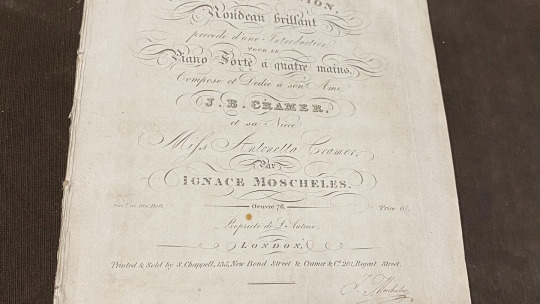 Rondeau brillant
précédé d'une Introduction
POUR LE
Piano Forte à quatre mains,
Composé et Dedié à son Ami
J. B. CRAMER,
et sa Nièce
Miss Antonella Cramer,
Par
IGNACE MOSCHELES.
Ent. at Sta. Hall.
Oeuvre 76.
Price 6/
Propriété de L'Auteur.
LONDON,
Printed & Sold by S. Chappell, 135, New Bond Street & Cramer & Co. 201, Regent Street.